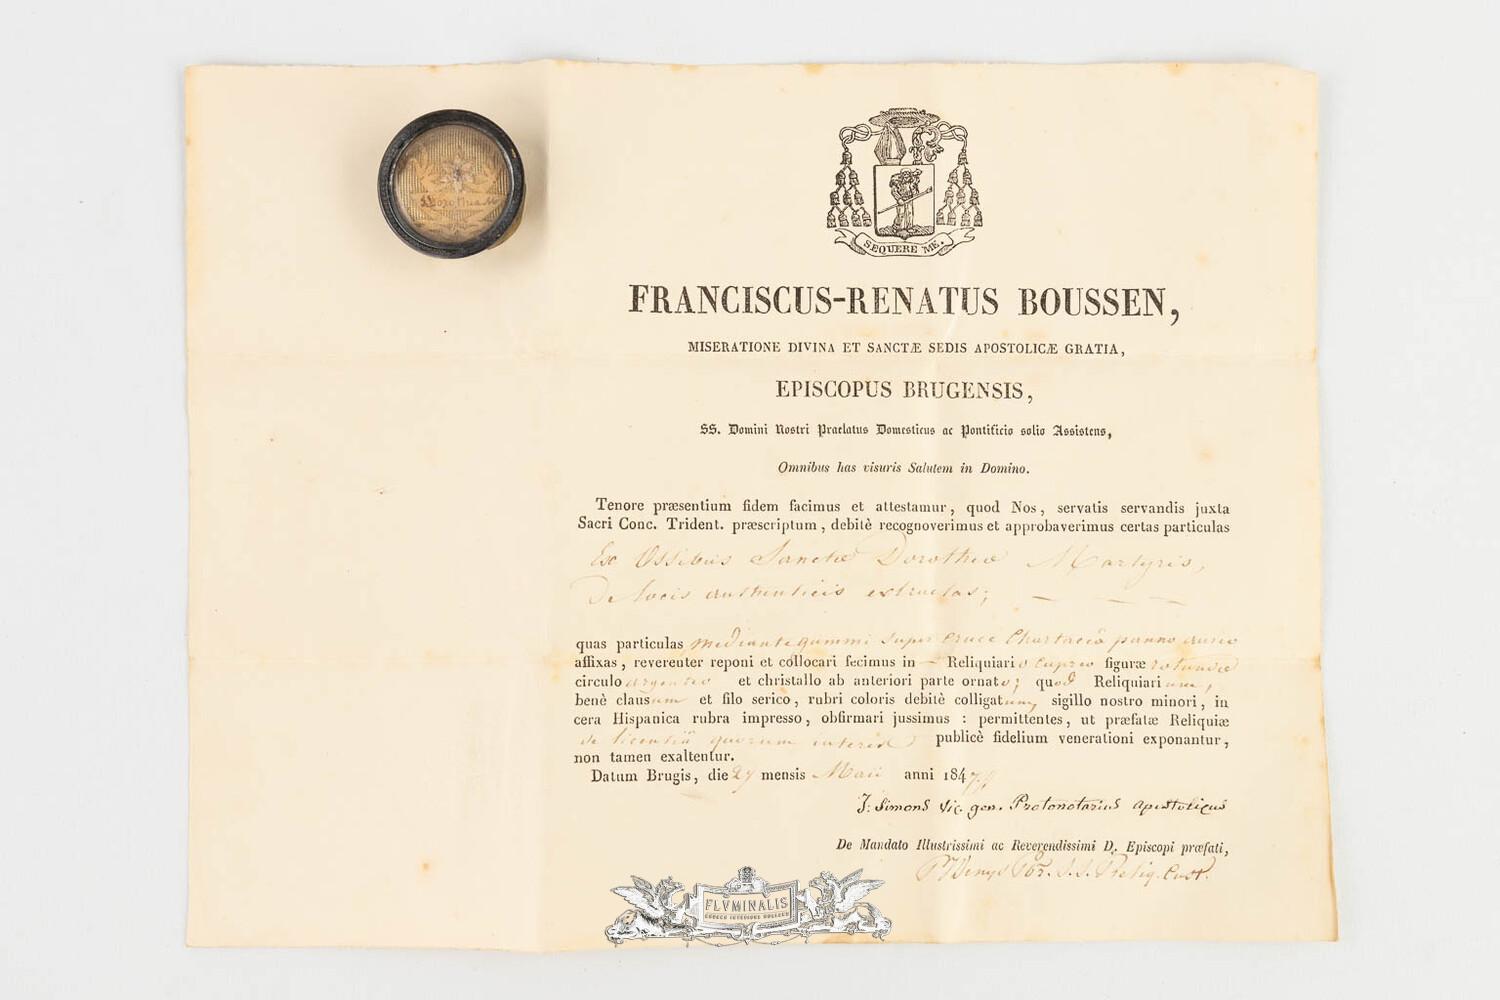 SEQUERE ME.
FRANCISCUS-RENATUS BOUSSEN,
MISERATIONE DIVINA ET SANCTÆ SEDIS APOSTOLICÆ GRATIA,
EPISCOPUS BRUGENSIS,
SS. Domini Nostri Praelatus Domesticus ac Pontificio solio Assistens,
Omnibus has visuris Salutem in Domino.
Tenore præsentium fidem facimus et attestamur, quod Nos, servatis servandis juxta
Sacri Conc. Trident. præscriptum, debitè recognoverimus et approbaverimus certas particulas
Ex Ossibus Sanctæ Dorotheæ Martyris,
De locis authenticis extractas;
quas particulas mediante gummi super cruce Chartaceâ panno aureo
affixas, reverenter reponi et collocari fecimus in — Reliquiario cupreo figuræ rotundæ
circulo argenteo et christallo ab anteriori parte ornato; quod Reliquiarium,
benè clausum et filo serico, rubri coloris debitè colligatum, sigillo nostro minori, in
cera Hispanica rubra impresso, obfirmari jussimus : permittentes, ut præfatæ Reliquiæ
de licentiâ quorum interest publicè fidelium venerationi exponantur,
non tamen exaltentur.
Datum Brugis, die 27 mensis Maii anni 1847
J: Simons Vic. gen. Protonotarius apostolicus
De Mandato Illustrissimi ac Reverendissimi D. Episcopi præfati,
Pbr. S.S. Reliq. Cust.
FLVMINALIS